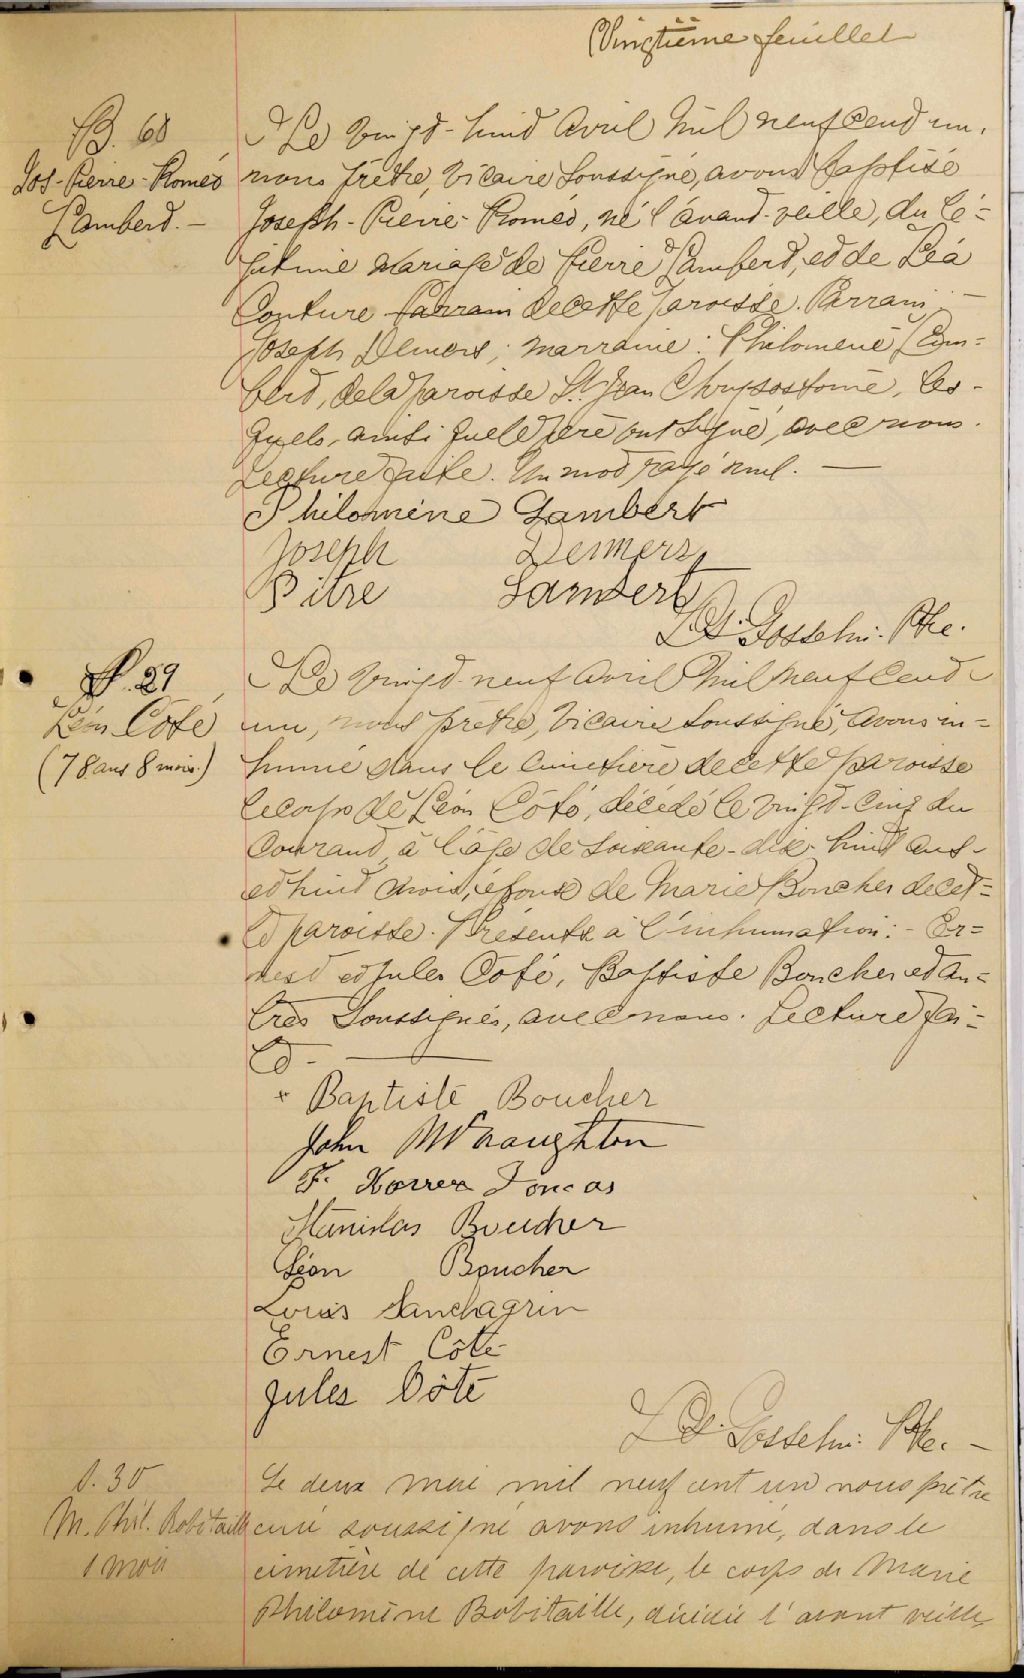 Vingtième feuillet
B. 60
Jos-Pierre-Roméo
Lambert. -
Le vingt-huit Avril mil neuf cent un,
nous prêtre, vicaire soussigné, avons baptisé
Joseph-Pierre-Roméo, né l'avant-veille, du lé=
gitime mariage de Pierre Lambert, et de Léa
Couture Parrain de cette paroisse. Parrain: -
Joseph Demers; marraine: Philomène Lam=
bert, de la paroisse St. Jean Chrysostome, les-
quels, ainsi que le père ont signé, avec nous.
Lecture faite. Un mot rayé nul. —
Philomène Lambert
Joseph Demers
Pitre Lambert
Ls. Gosselin. Ptre.
S. 29
Léon Côté
(78 ans 8 mois.)
Le vingt-neuf Avril mil neuf cent
un, nous prêtre, vicaire soussigné, avons in=
humé dans le cimetière de cette paroisse
le corps de Léon Côté, décédé le vingt-cinq du
courant, à l'âge de soixante-dix-huit ans
et huit mois, époux de Marie Boucher de cet=
te paroisse. Présents à l'inhumation: - Er=
nest et Jules Côté, Baptiste Boucher et au=
tres soussignés, avec nous. Lecture fai=
te. —
+ Baptiste Boucher
John McNaughton
F. Xavier Foncas
Stanislas Boucher
Léon Boucher
Louis Sanchagrin
Ernest Côté
Jules Côté
Ls. Gosselin. Ptre. -
S. 30
M. Phil. Robitaille
1 mois
Le deux mai mil neuf cent un nous prêtre
curé soussigné avons inhumé, dans le
cimetière de cette paroisse, le corps de Marie
Philomène Robitaille, décédée l'avant veille,